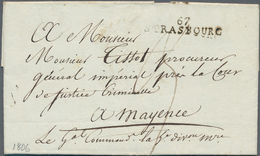 A Monsieur
67
STRASBOURG
Monsieur Tissot procureur
général impérial près la Cour
de justice Criminelle
a mayence
1806
Le Gal Command. la 5e divon mre